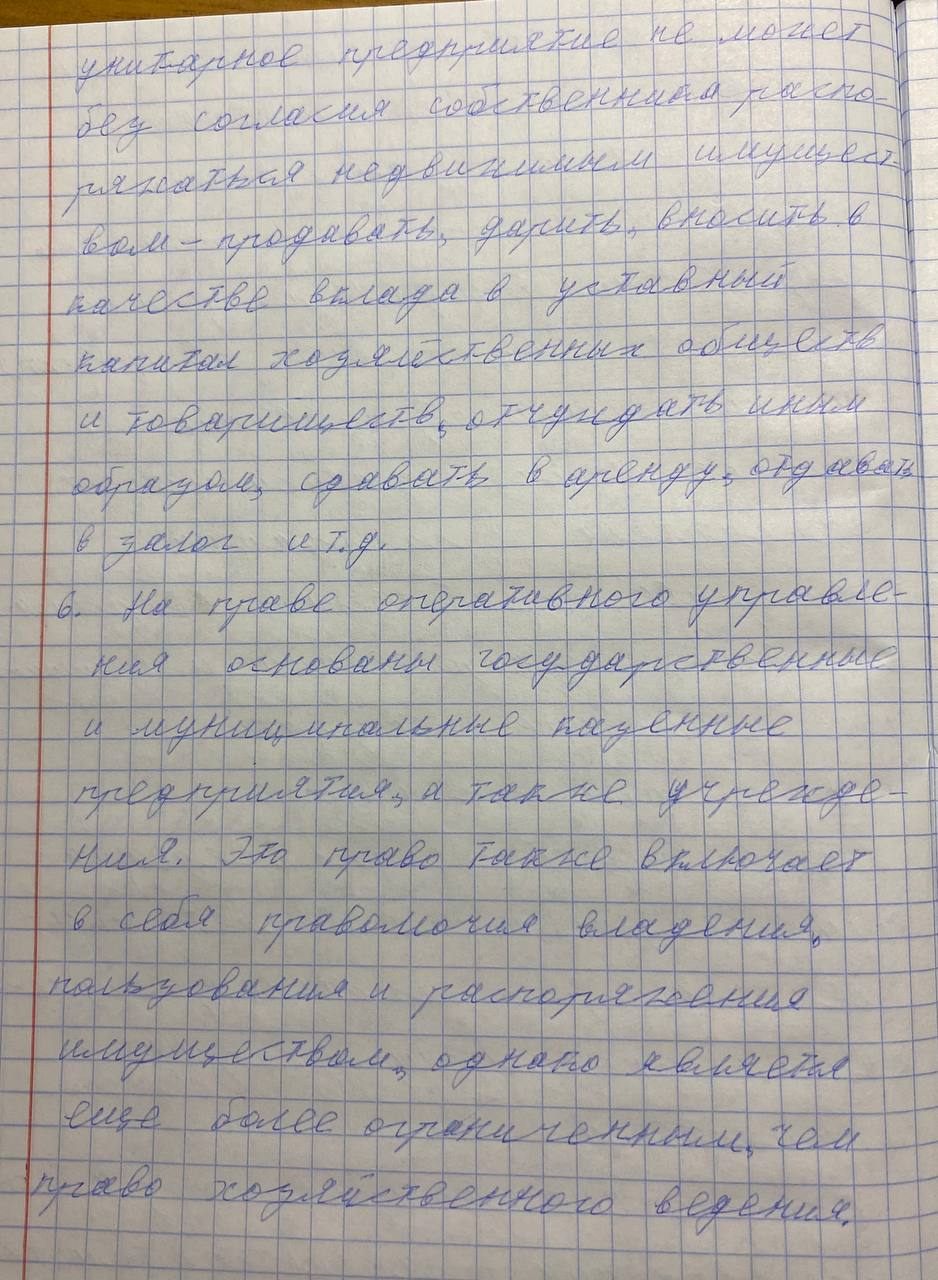 унитарное предприятие не может
без согласия собственника распо-
ряжаться недвижимым имущест
вом – продавать, дарить, вносить в
качестве вклада в уставный
капитал хозяйственных обществ
и товариществ, отчуждать иным
образом, сдавать в аренду, отдавать
в залог и т.д.
6. На праве оперативного управле-
ния основаны государственные
и муниципальные казенные
предприятия, а также учрежде-
ния. Это право также включает
в себя правомочия владения,
пользования и распоряжения
имуществом, однако является
еще более ограниченным, чем
право хозяйственного ведения.